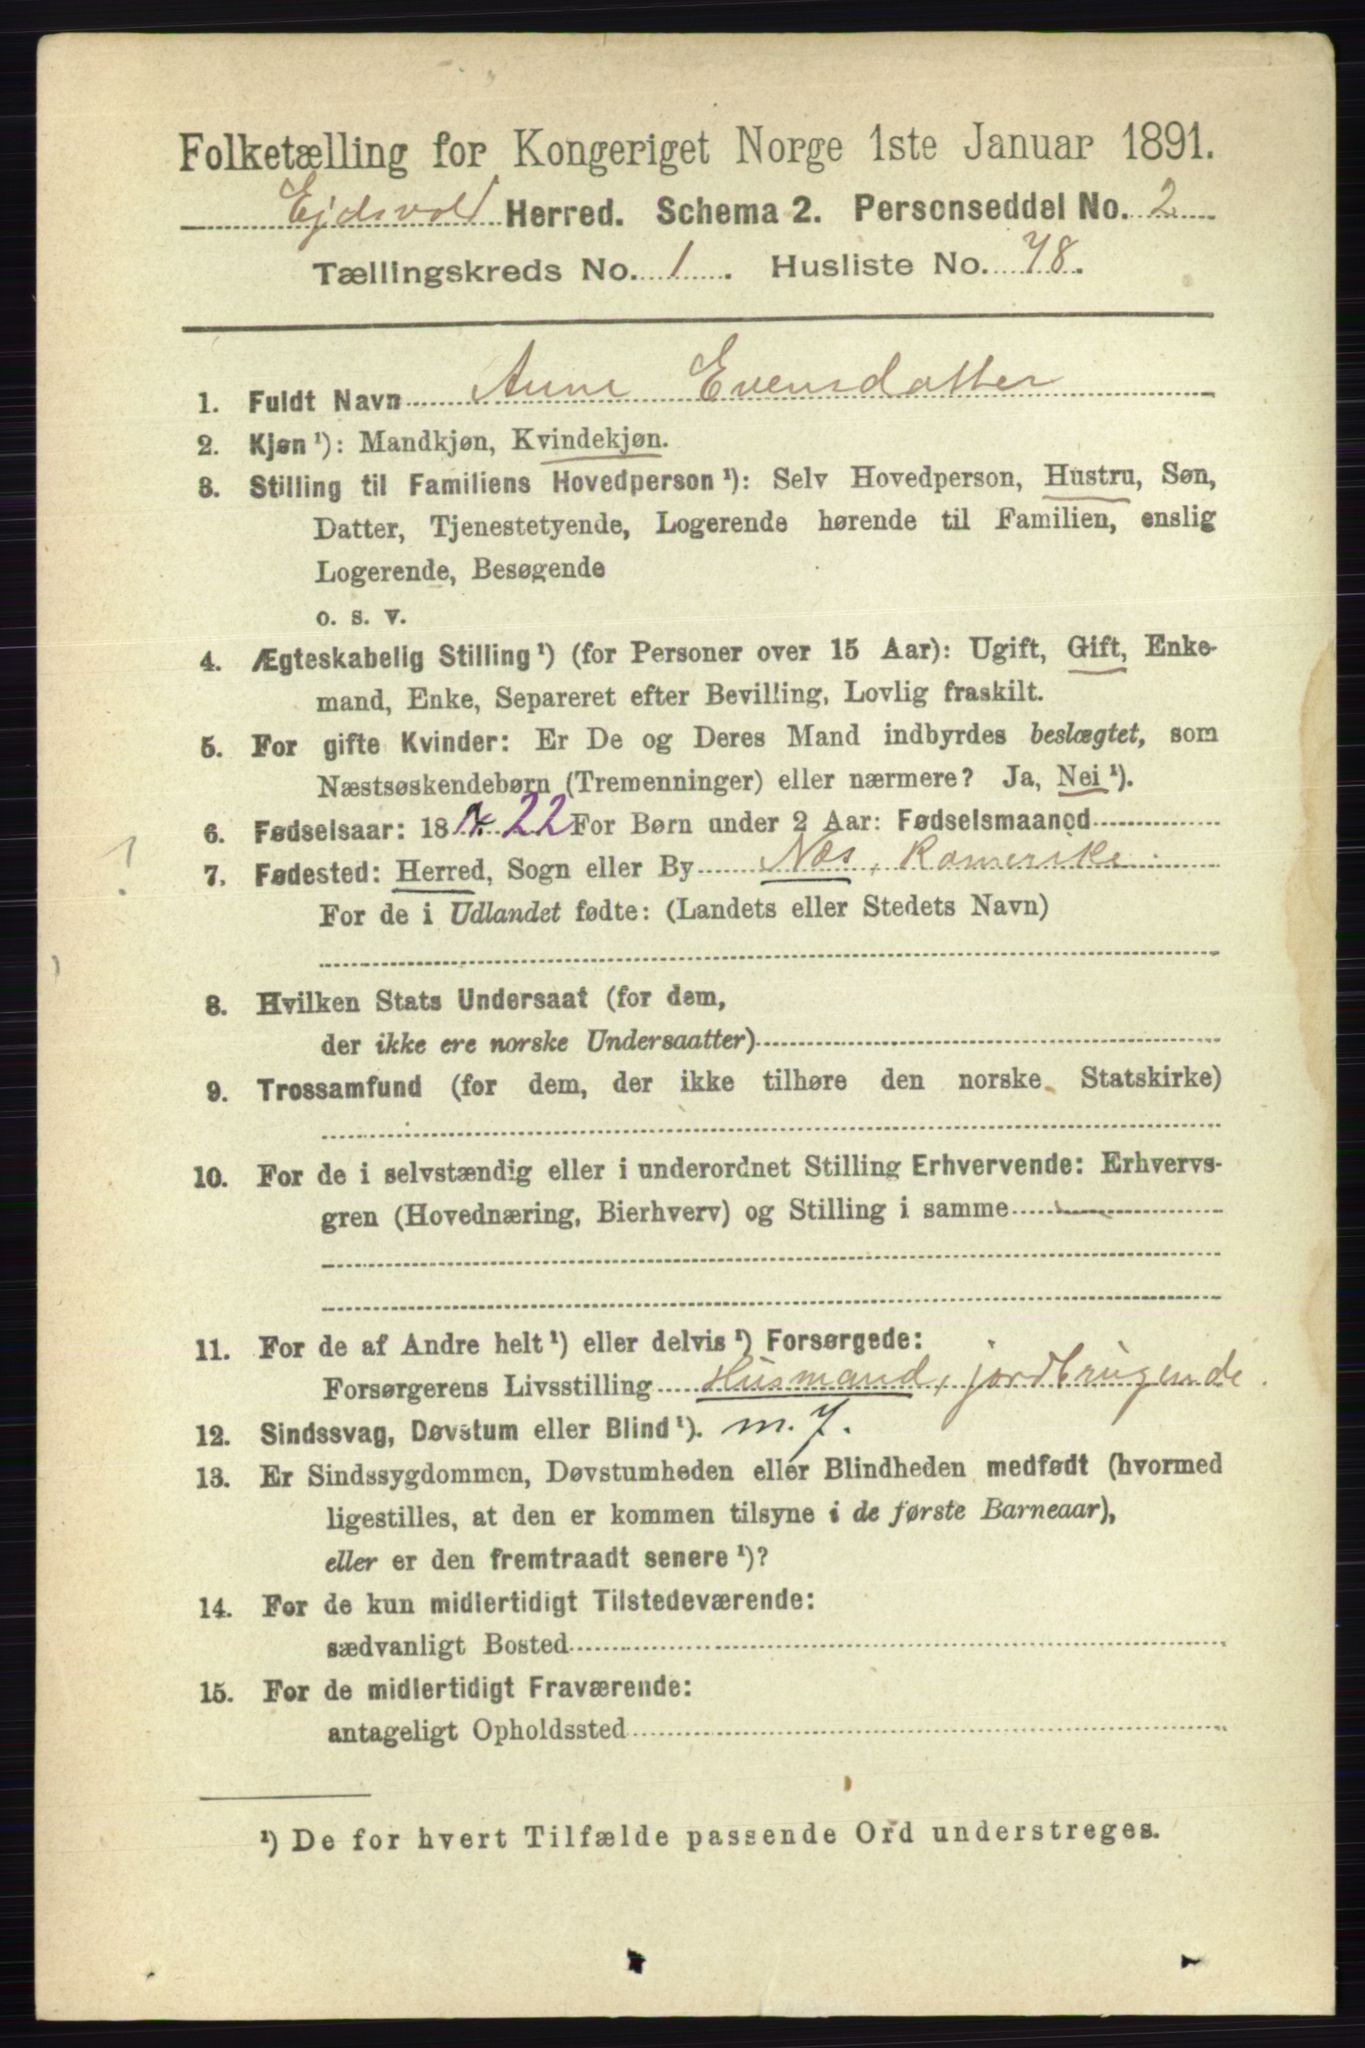 Folketælling for Kongeriget Norge 1ste Januar 1891.
Ejdsvold Herred. Schema 2. Personseddel No. 2
Tællingskreds No. 1. Husliste No. 78.
1. Fuldt Navn Anne Evensdatter
2. Kjøn ¹): Mandkjøn, Kvindekjøn.
3. Stilling til Familiens Hovedperson ¹): Selv Hovedperson, Hustru, Søn,
Datter, Tjenestetyende, Logerende hørende til Familien, enslig
Logerende, Besøgende
o. s. v.
4. Ægteskabelig Stilling ¹) (for Personer over 15 Aar): Ugift, Gift, Enke-
mand, Enke, Separeret efter Bevilling, Lovlig fraskilt.
5. For gifte Kvinder: Er De og Deres Mand indbyrdes beslægtet, som
Næstsøskendebørn (Tremenninger) eller nærmere? Ja, Nei ¹).
6. Fødselsaar: 18 22 For Børn under 2 Aar: Fødselsmaaned
7. Fødested: Herred, Sogn eller By Næs, Romerike
For de i Udlandet fødte: (Landets eller Stedets Navn)
8. Hvilken Stats Undersaat (for dem,
der ikke ere norske Undersaatter)
9. Trossamfund (for dem, der ikke tilhøre den norske Statskirke)
10. For de i selvstændig eller i underordnet Stilling Erhvervende: Erhvervs-
gren (Hovednæring, Bierhverv) og Stilling i samme
11. For de af Andre helt ¹) eller delvis ¹) Forsørgede:
Forsørgerens Livsstilling Husmand, jordbrugende.
12. Sindssvag, Døvstum eller Blind ¹). m. J.
13. Er Sindssygdommen, Døvstumheden eller Blindheden medfødt (hvormed
ligestilles, at den er kommen tilsyne i de første Barneaar),
eller er den fremtraadt senere ¹)?
14. For de kun midlertidigt Tilstedeværende:
sædvanligt Bosted
15. For de midlertidigt Fraværende:
antageligt Opholdssted
¹) De for hvert Tilfælde passende Ord understreges.